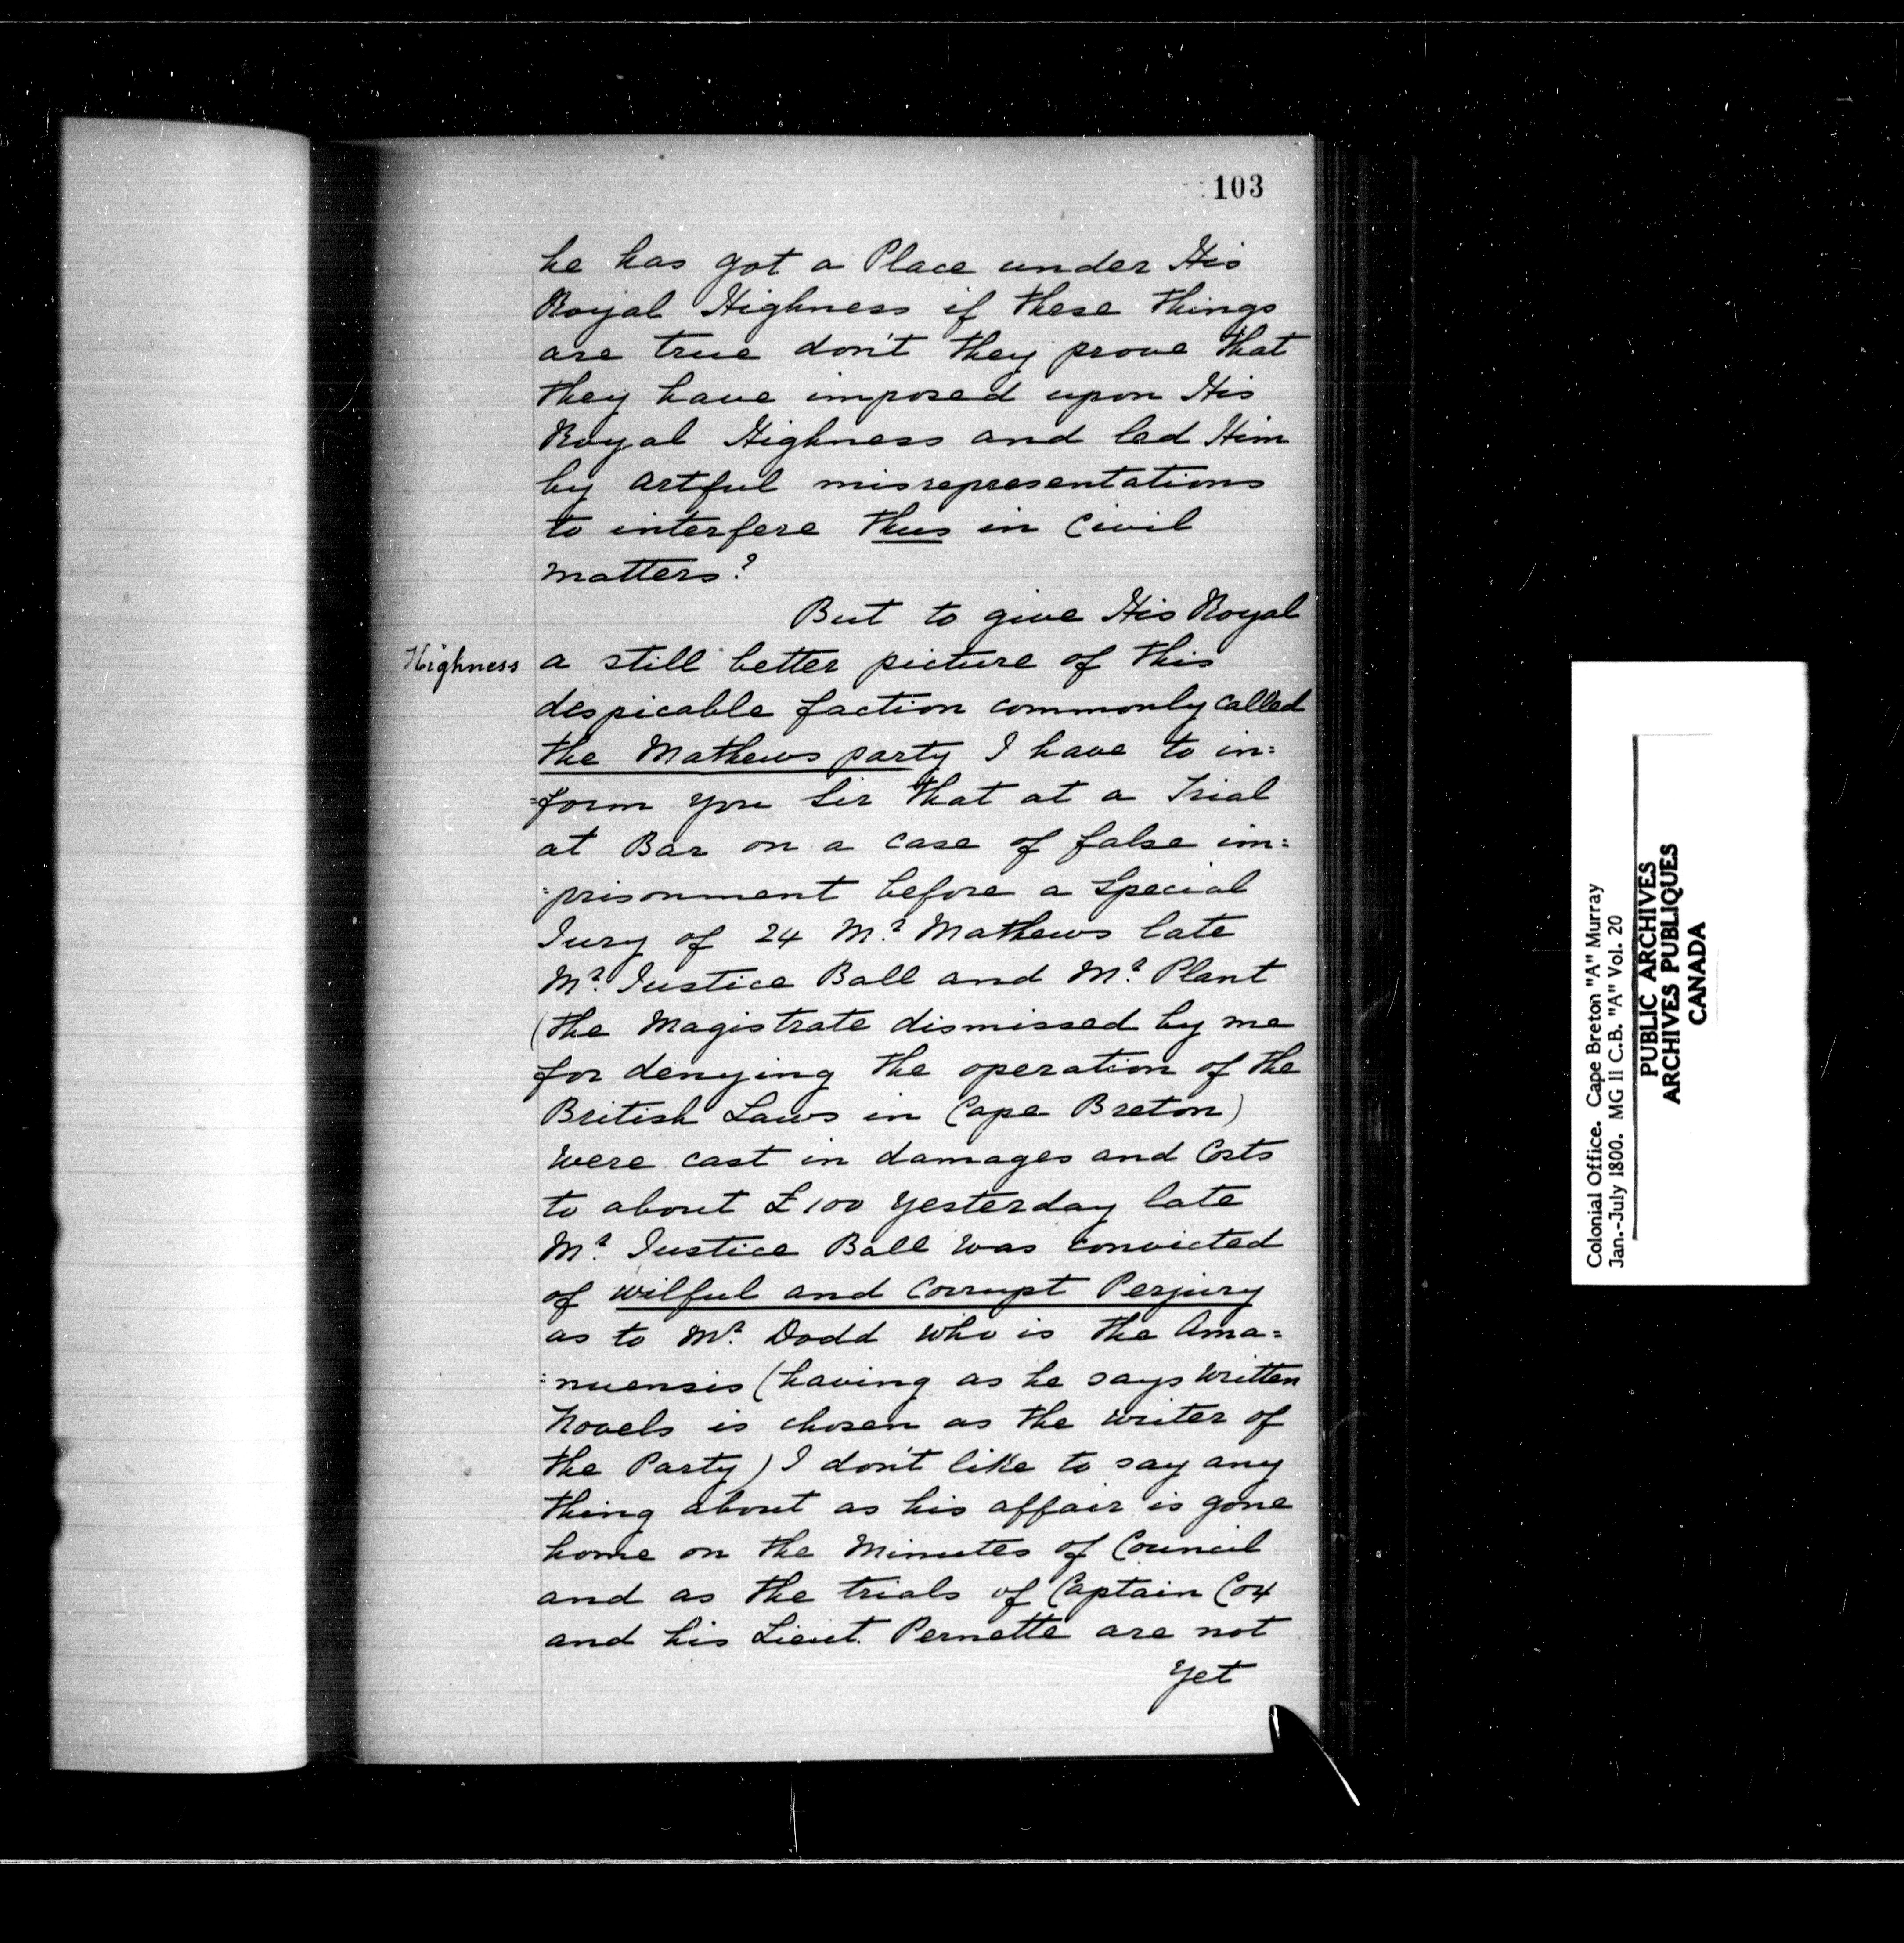 103
he has got a Place under His
Royal Highness if these things
are true don't they prove that
they have imposed upon His
Royal Highness and led Him
by artful misrepresentations
to interfere thus in Civil
matters?
But to give His Royal
Highness a still better picture of this
despicable faction commonly called
the Mathews party I have to in=
=form you Sir that at a Trial
at Bar on a case of false im=
=prisonment before a Special
Jury of 24 Mr. Mathews late
Mr. Justice Ball and Mr. Plant
(the Magistrate dismissed by me
for denying the operation of the
British Laws in Cape Breton)
were cast in damages and Costs
to about £100 yesterday late
Mr. Justice Ball was convicted
of wilful and Corrupt Perjury
as to Mr. Dodd who is the Ama=
=nuensis (having as he says written
Novels is chosen as the writer of
the Party) I don't like to say any
thing about as his affair is gone
home on the Minutes of Council
and as the trials of Captain Cox
and his Lieut. Pernette are not
yet
Colonial Office. Cape Breton "A" Murray
Jan.-July 1800. MG 11 C.B. "A" Vol. 20
PUBLIC ARCHIVES
ARCHIVES PUBLIQUES
CANADA